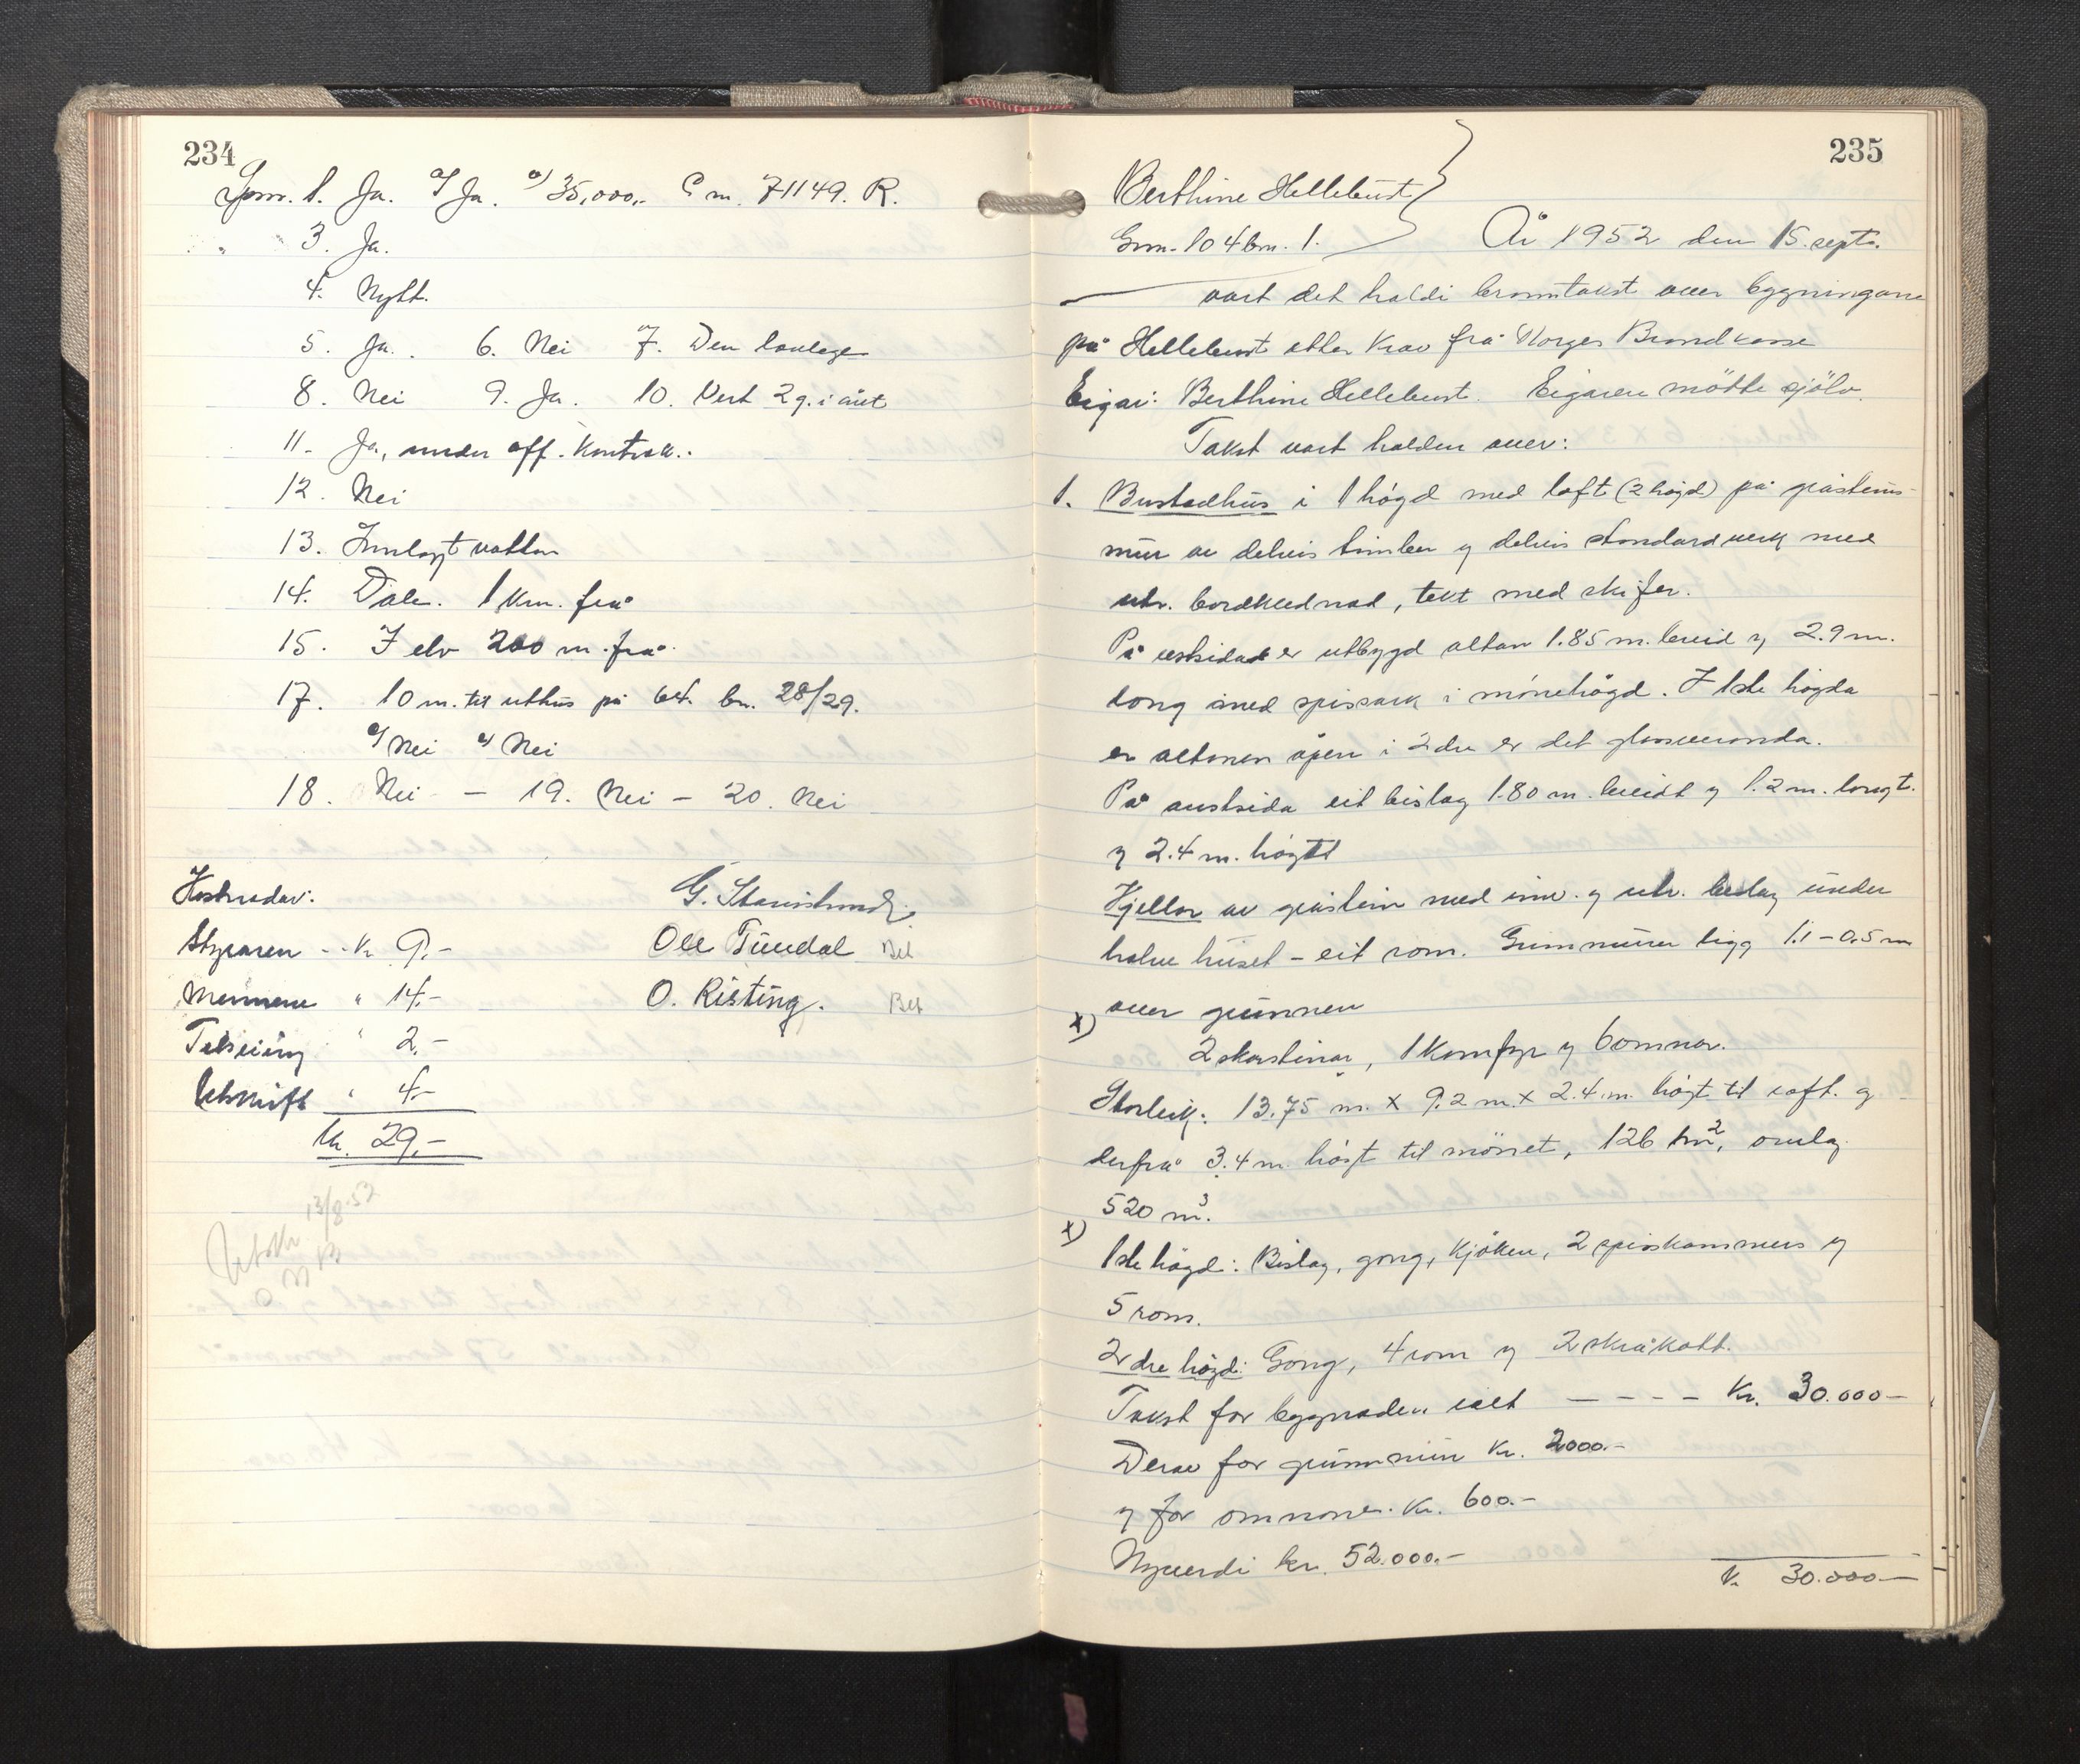 234
Spm. 1. Ja. a) Ja. c) 35,000,- C m. 71149. R.
" " 3. Ja.
4. Nytt.
5. Ja. 6. Nei 7. Den lovlege
8. Nei 9. Ja. 10. Vert 2 g. i året
11. Ja, under off. Kontrol..
12. Nei
13. Innlagt vatten
14. Dale. 1 km. frå
15. I elv 200 m. frå.
17. 10 m. til uthus på 64. bn. 28/29.
Nei Nei
18. Nei - 19. Nei - 20. Nei
Kostnader:
Styraren -- Kr 9,-
Mennene " 14,-
Tilseiing " 2,-
Utskrift " 4,-
Kr. 29,-
G.
Ole Tundal Bet
O. Risting. Bet
13/8-52
235
Berthine Hellebust
Gnr. 104 bn. 1.
År 1952 den 15. sept.
vart det haldi branntakst over bygningane
på Hellebust etter krav frå Norges Brandkasse
Eigar: Berthine Hellebust. Eigaren møtte sjølv.
Takst vart halden over:
1. Bustadhus i 1 høgd med loft (2 høgd) på gråsteins-
mur av delvis timber og delvis standardverk med
utv. bordklednad, tekt med skifer.
På vestsida er utbygd altan 1.85 m. breid og 2.9 m.
long med spissark i mønehøgd. I 1ste høgda
er altanen åpen i 2dre er det glassveranda.
På austsida eit bislag 1.80 m. breidt og 1.2 m. langt.
og 2.4 m. høgt
Kjellar av gråstein med innv. og utv. beslag under
halve huset - eit rom. Grunnmuren ligg 1.1 - 0,5 m
over grunnen
x) 2 skorsteinar, 1 komfyr og 6 omnar.
Storleik: 13.75 m. x 9.2 m. x 2.4 m. høgt til raft. og
derfrå 3.4 m. høgt til mønet, 126 m², omlag
520 m³.
x) 1ste høgd: Bislag, gong, kjøken, 2 spiskammers og
5 rom.
2dre høgd: Gong, 4 rom og 2 skråkott.
Takst for bygnaden ialt - - - - Kr. 30.000-
Derav for grunnmur Kr. 2000.-
og for omnane. Kr. 600.-
Nyverdi kr. 52.000.-
Kr. 30.000-